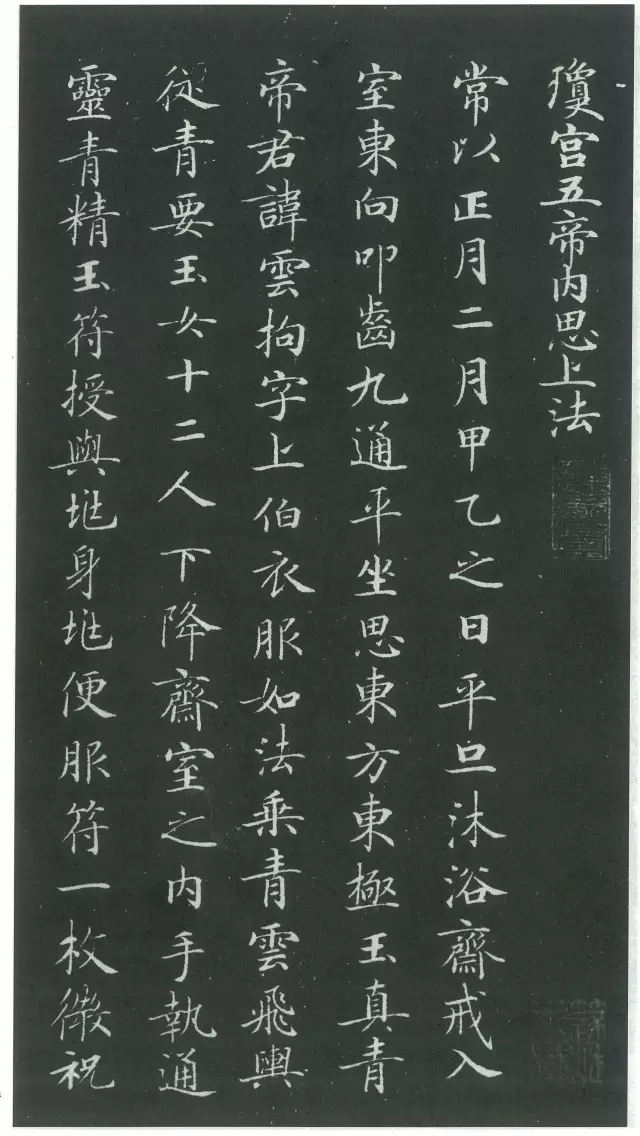 瓊宮五帝內思上法
常以正月二月甲乙之日平旦沐浴齋戒入
室東向叩齒九通平坐思東方東極玉真青
帝君諱雲拘字上伯衣服如法乘青雲飛輿
從青要玉女十二人下降齋室之內手執通
靈青精玉符授與兆身兆便服符一枚微祝